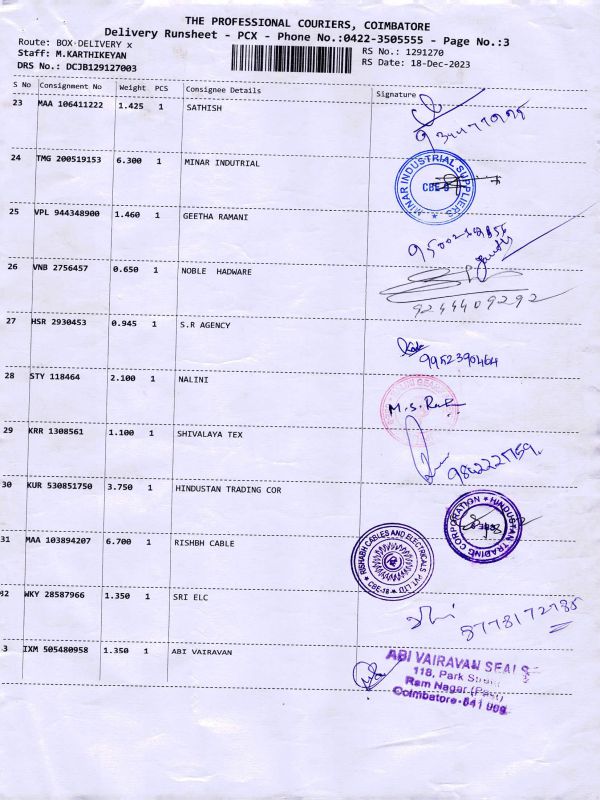 THE PROFESSIONAL COURIERS, COIMBATORE
Delivery Runsheet - PCX - Phone No.:0422-3505555 - Page No.:3
Route: BOX-DELIVERY x
RS No.: 1291270
Staff: M.KARTHIKEYAN
RS Date: 18-Dec-2023
DRS No.: DCJB129127003
S No Consignment No Weight PCS Consignee Details Signature
23 MAA 106411222 1.425 1 SATHISH
24 TMG 200519153 6.300 1 MINAR INDUTRIAL
MINAR INDUSTRIAL SUPPLIERS
25 VPL 944348900 1.460 1 GEETHA RAMANI
26 VNB 2756457 0.650 1 NOBLE HADWARE
9244409292
27 HSR 2930453 0.945 1 S.R AGENCY
9952390464
28 STY 118464 2.100 1 NALINI
29 KRR 1308561 1.100 1 SHIVALAYA TEX
30 KUR 530851750 3.750 1 HINDUSTAN TRADING COR
HINDUSTAN TRADING CORPORATION
31 MAA 103894207 6.700 1 RISHBH CABLE
RISHABH CABLES AND ELECTRICALS PVT LTD
CBE-18
32 WKY 28587966 1.350 1 SRI ELC
3 IXM 505480958 1.350 1 ABI VAIRAVAN
ABI VAIRAVAN SEALS
118, Park
Ram Nagar
Coimbatore-641 009